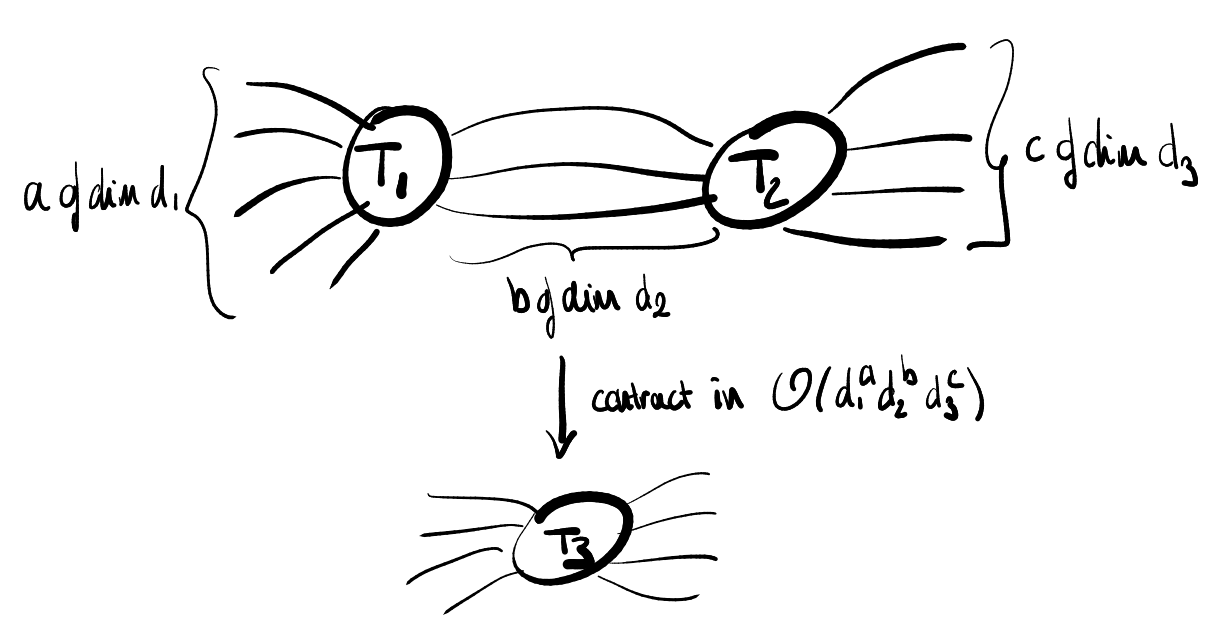 T₁
T₂
a of dim d₁
c of dim d₃
b of dim d₂
contract in O(d₁ᵃ d₂ᵇ d₃ᶜ)
T₃